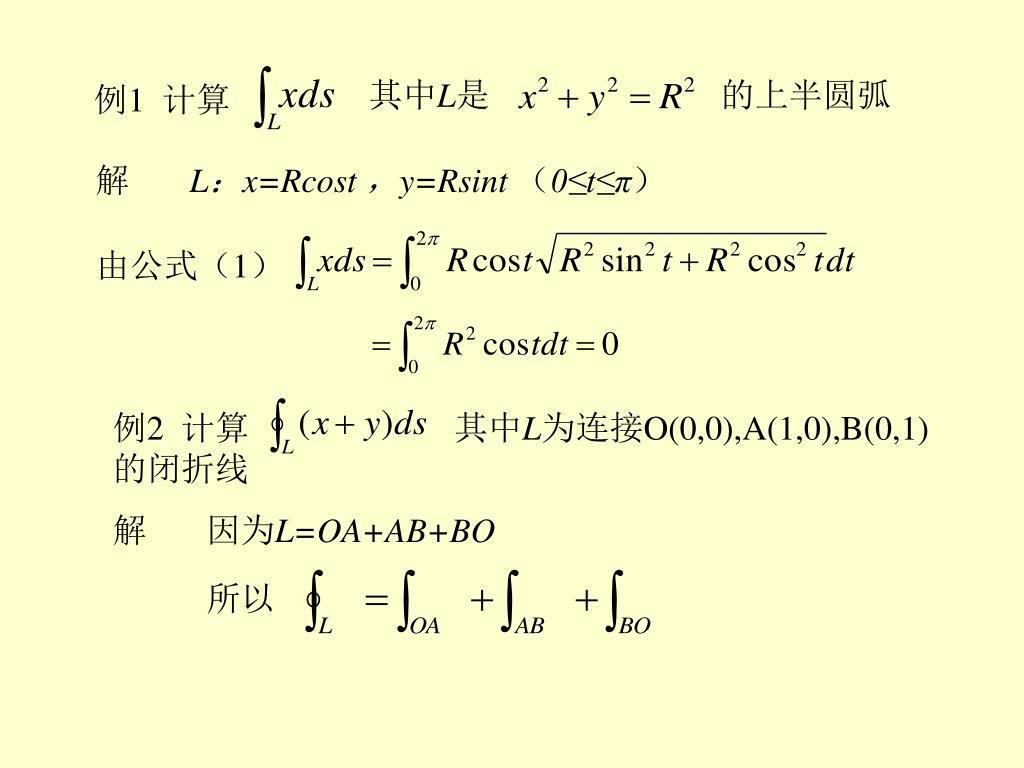 例1 计算 ∫_L xds 其中L是 x² + y² = R² 的上半圆弧
解 L：x=Rcost ，y=Rsint （0≤t≤π）
由公式（1） ∫_L xds = ∫_0^{2π} R cos t √(R² sin² t + R² cos² t) dt
= ∫_0^{2π} R² cos tdt = 0
例2 计算 ∮_L (x + y)ds 其中L为连接O(0,0),A(1,0),B(0,1)
的闭折线
解 因为L=OA+AB+BO
所以 ∮_L = ∫_{OA} + ∫_{AB} + ∫_{BO}